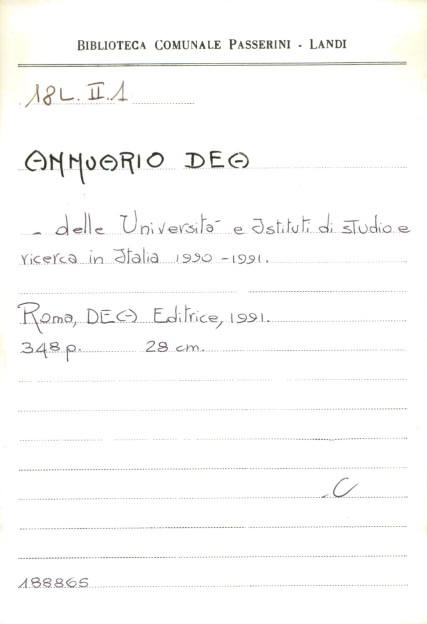 BIBLIOTECA COMUNALE PASSERINI - LANDI
18L. II. 1
ANNUARIO DEA
- delle Università e Istituti di studio e
ricerca in Italia 1990-1991.
Roma, DEA Editrice, 1991.
348 p. 28 cm.
C
188865